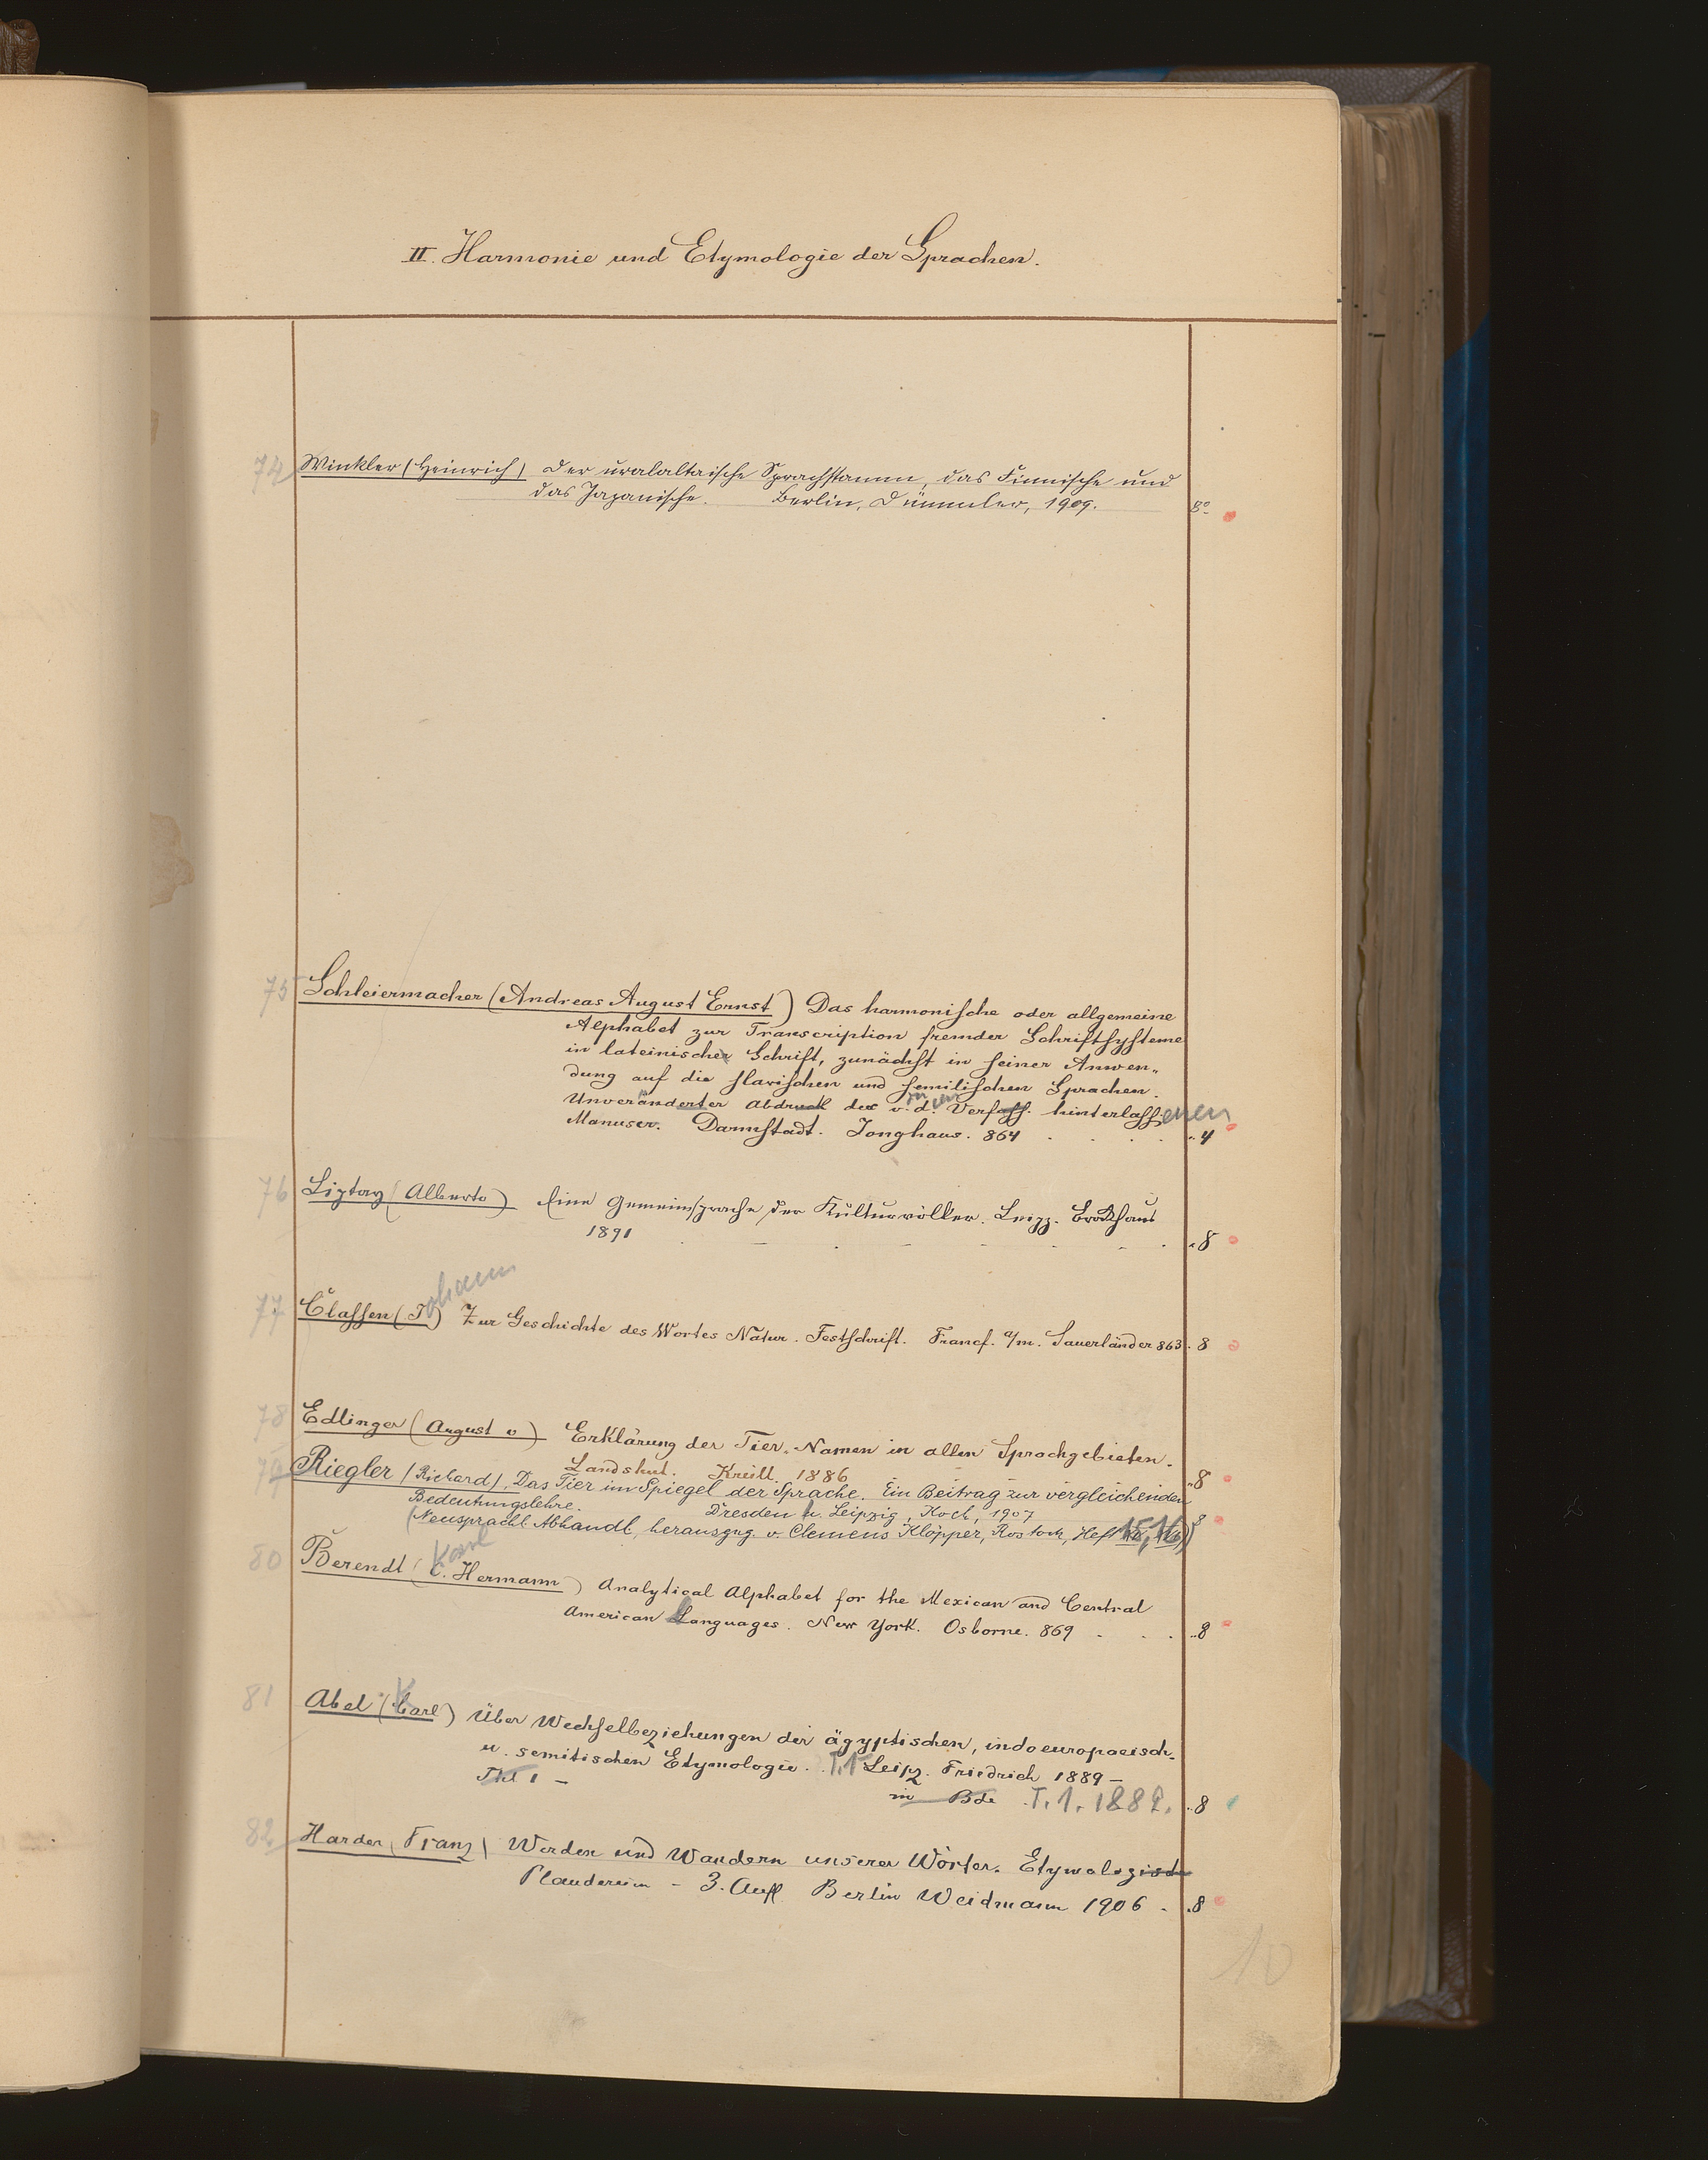 II. Harmonie und Etymologie der Sprachen.
74 Winkler (Heinrich) Der uralaltaische Sprachstamm, das Finnische und
das Japanische. Berlin, Dümmler, 1909. 8°
75 Schleiermacher (Andreas August Ernst) Das harmonische oder allgemeine
Alphabet zur Transcription fremder Schriftsysteme
in lateinischer Schrift, zunächst in seiner Anwen„
dung auf die slavischen und semitischen Sprachen.
Unveränderter Abdruck des v. d. Verfass. hinterlassenen
Manuscr. Darmstadt. Jonghaus. 864 . . . . „4
76 Liptay (Alberto) Eine Gemeinsprache der Kulturvölker. Leipz. Brockhaus
1891 „8
77 Classen (Johann) Zur Geschichte des Wortes Natur. Festschrift. Francf. a/m. Sauerländer 863. 8
78 Edlinger (August v) Erklärung der Tier-Namen in allen Sprachgebieten.
Landshut. Krüll. 1886 „8
79 Riegler (Richard), Das Tier im Spiegel der Sprache. Ein Beitrag zur vergleichenden
Bedeutungslehre. Dresden u. Leipzig, Koch, 1907 8
(Neusprachl. Abhandl. herausgeg. v. Clemens Klöpper, Rostock, Heft 15, 16)
80 Berendt (Karl C. Hermann) Analytical Alphabet for the Mexican and Central
American Languages. New York. Osborne. 869 . . . „8
81 Abel (Carl) Über Wechselbeziehungen der ägyptischen, indoeuropaeisch.
u. semitischen Etymologie. T. 1 Leipz. Friedrich 1889 –
Thl 1 – in Bde T. 1. 1889. „8
82 Harder (Franz) Werden und Wandern unserer Wörter. Etymologische
Plaudereien – 3. Aufl. Berlin Weidmann 1906 . .8
10